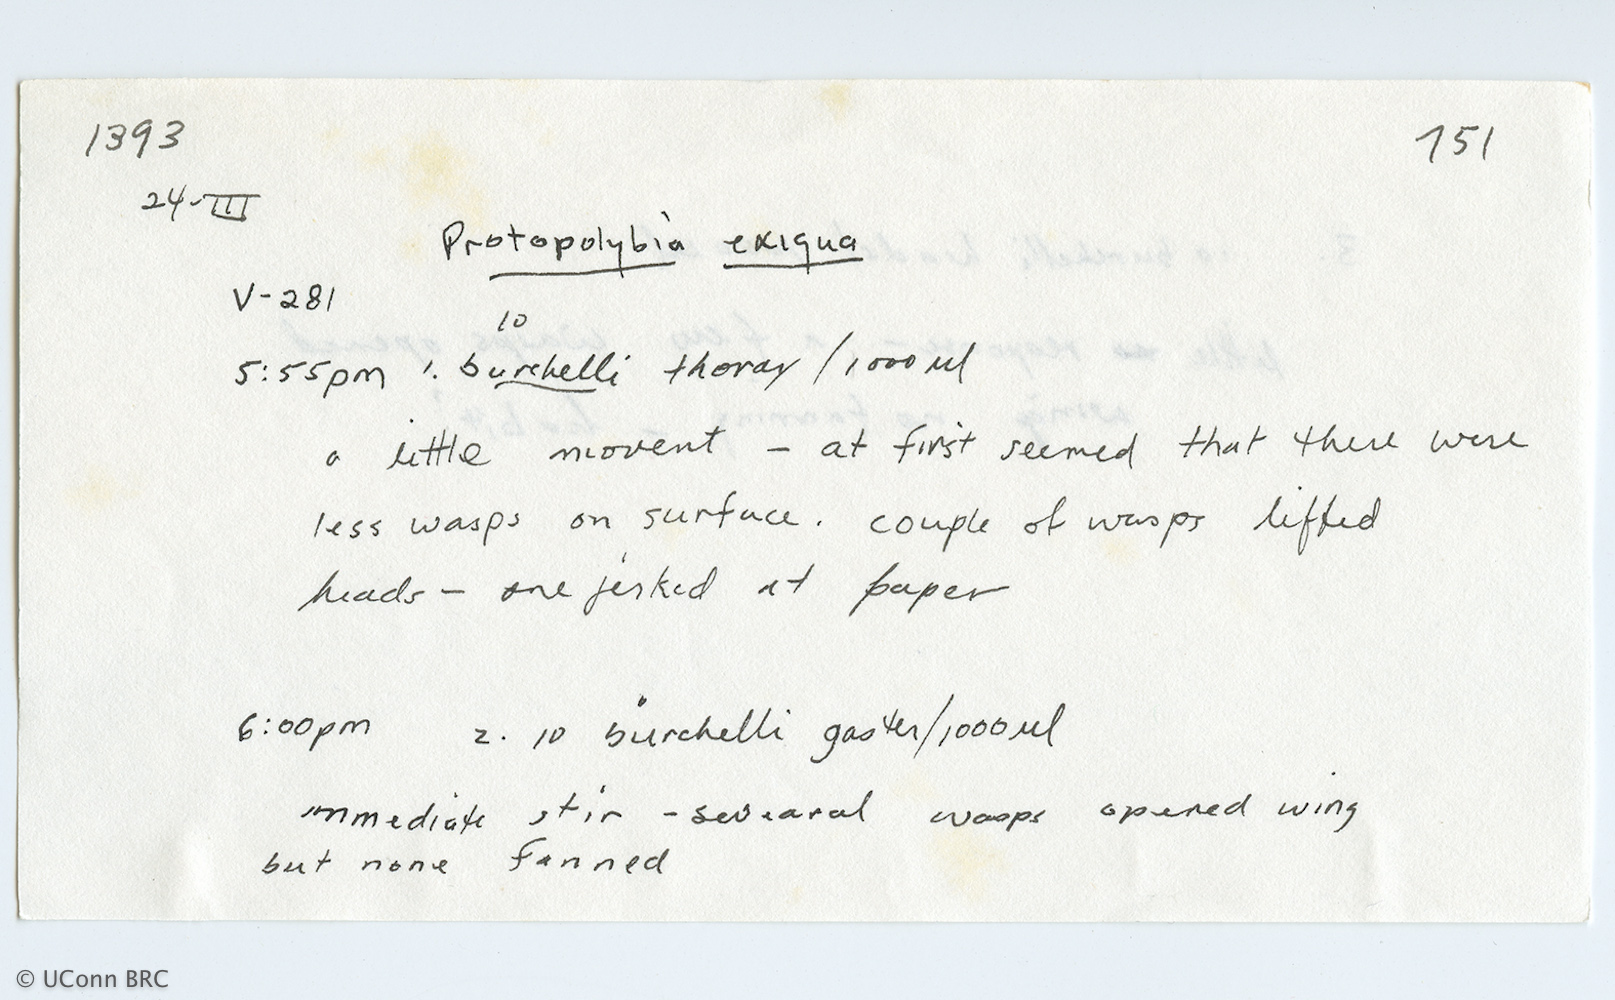 1393
751
24-III
Protopolybia exiqua
V-281
10
5:55pm 1. burchelli thorax /1000 ul
a little movent - at first seemed that there were
less wasps on surface. couple of wasps lifted
heads - one jerked at paper
6:00pm 2. 10 burchelli gaster/1000 ul
immediate stir - sevearal wasps opened wing
but none fanned
© UConn BRC